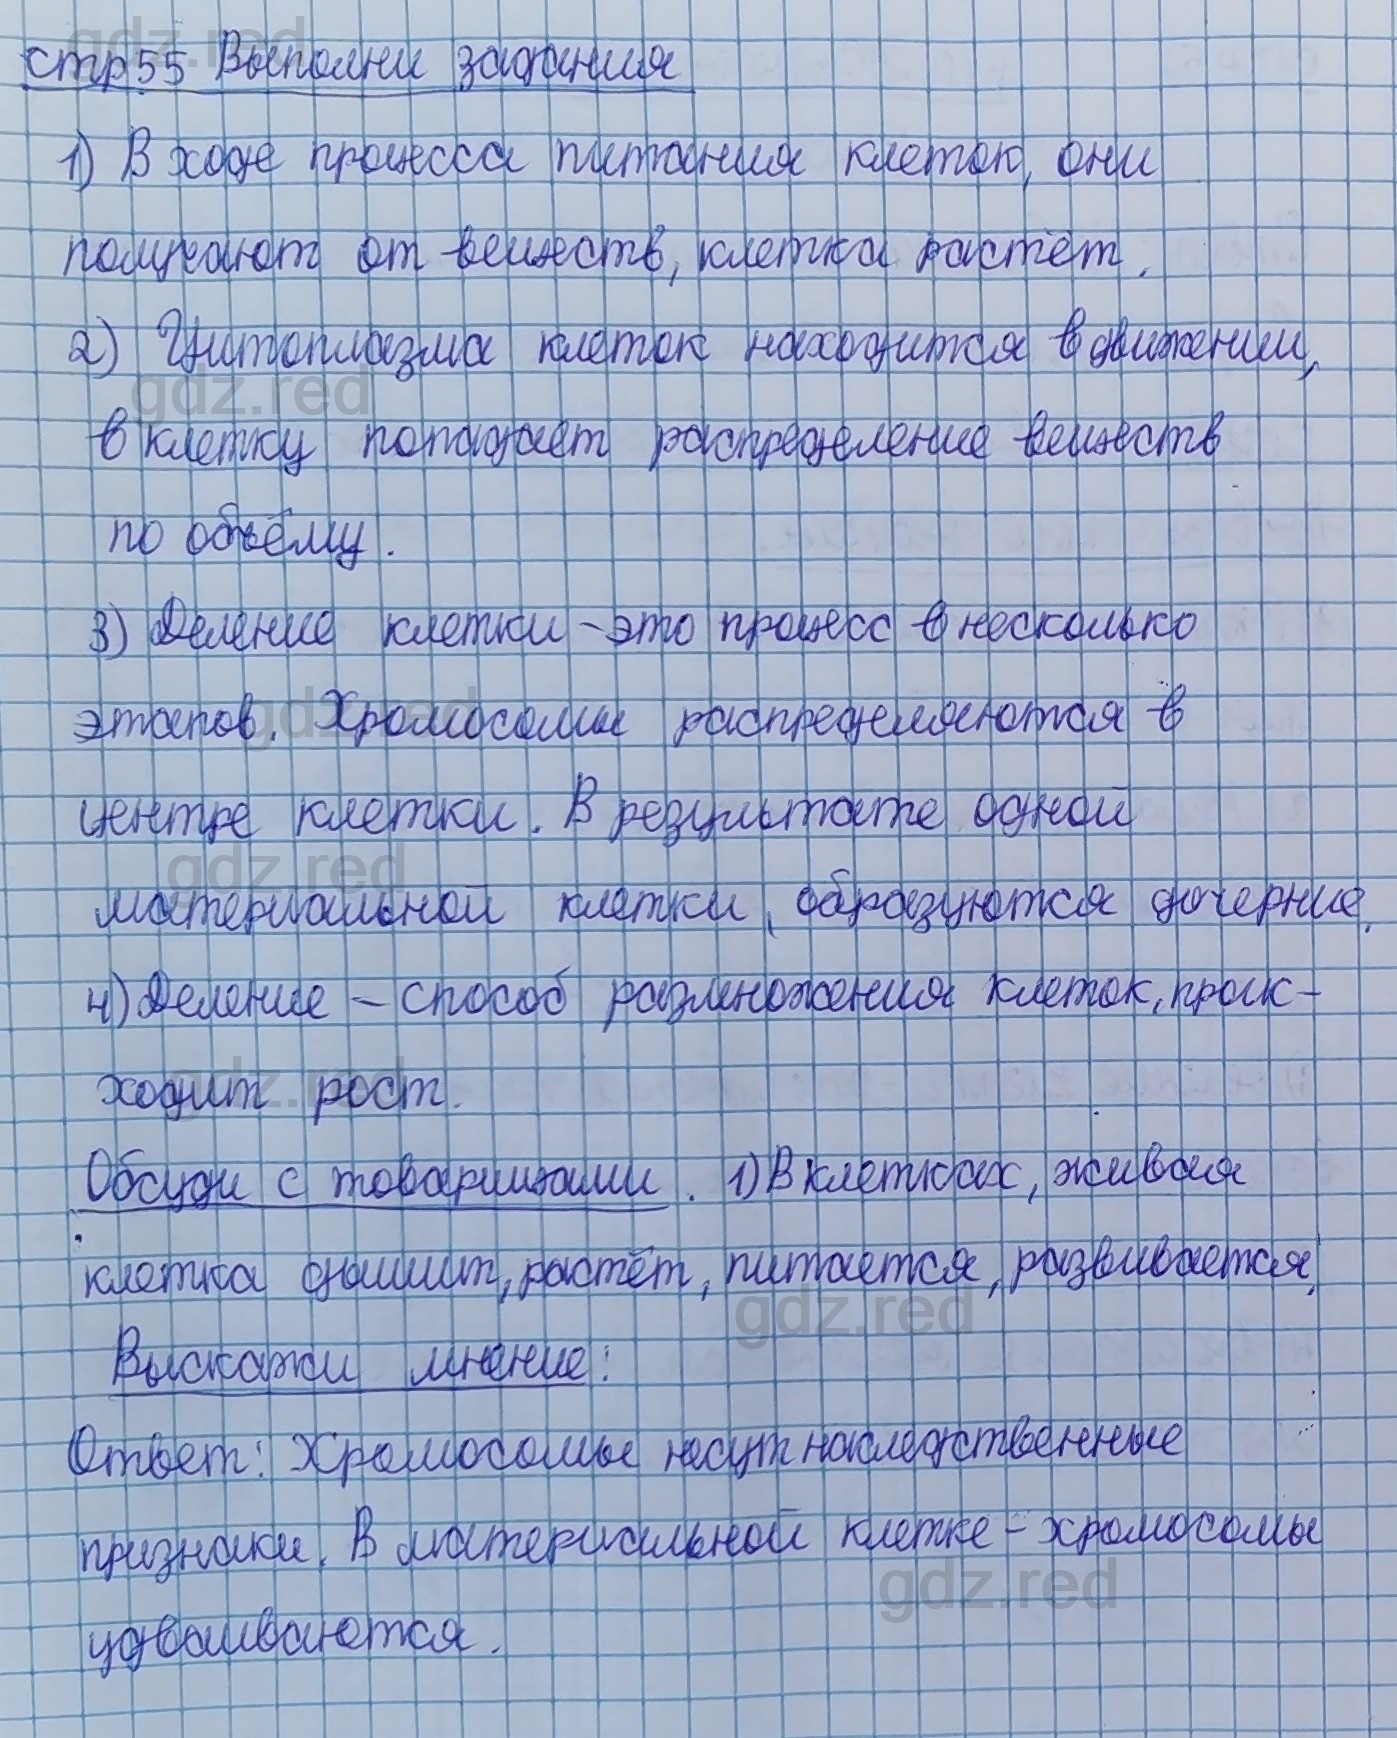 стр 55 Выполни задания
1) В ходе процесса питания клеток, они
получают от веществ, клетка растёт.
2) Цитоплазма клеток находится в движении,
в клетку попадает распределение веществ
по объёму.
3) Деление клетки - это процесс в несколько
этапов. Хромосомы распределяются в
центре клетки. В результате одной
материальной клетки, образуются дочерние.
4) Деление - способ размножения клеток, проис-
ходит рост.
Обсуди с товарищами. 1) В клетках, живая
клетка дышит, растёт, питается, развивается,
Выскажи мнение:
Ответ: Хромосомы несут наследственные
признаки. В материальной клетке - хромосомы
удваиваются.
gdz.red
gdz.red
gdz.red
gdz.red
gdz.red
gdz.red
gdz.red